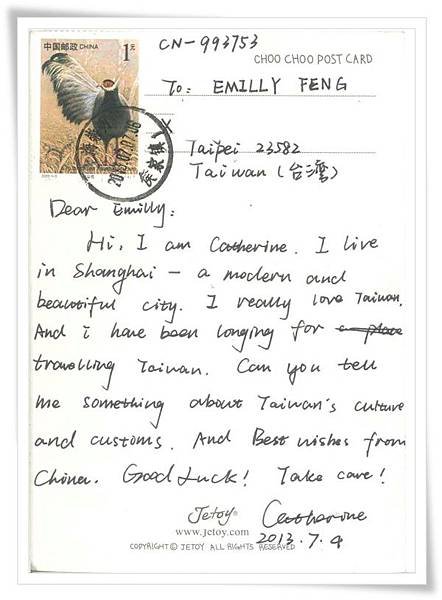 CN-993753
中国邮政 CHINA 1元
CHOO CHOO POST CARD
To: EMILLY FENG
Taipei 23582
Taiwan (台灣)
Dear Emilly:
Hi, I am Catherine. I live
in Shanghai — a modern and
beautiful city. I really love Taiwan.
And i have been longing for a place
travelling Taiwan. Can you tell
me something about Taiwan's culture
and customs. And Best wishes from
China. Good Luck! Take care!
Jetoy®
www.jetoy.com
Catherine
COPYRIGHT © JETOY ALL RIGHTS RESERVED
2013.7.4